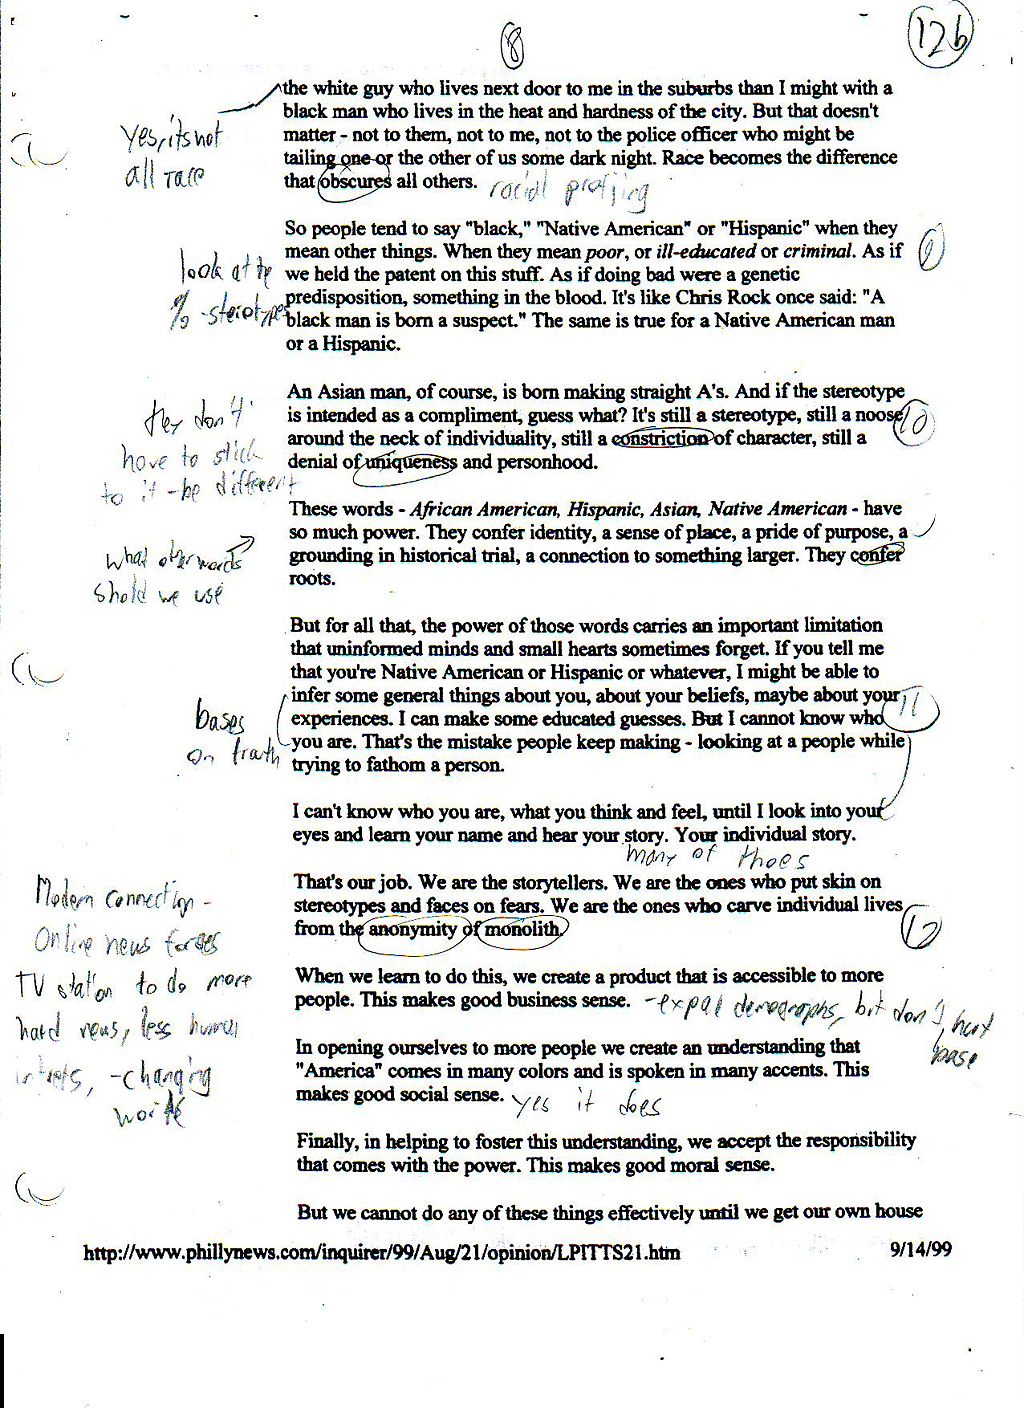 8
12b
the white guy who lives next door to me in the suburbs than I might with a
black man who lives in the heat and hardness of the city. But that doesn't
matter - not to them, not to me, not to the police officer who might be
tailing one or the other of us some dark night. Race becomes the difference
that obscures all others. racial profiing
yes, its not
all race
So people tend to say "black," "Native American" or "Hispanic" when they
mean other things. When they mean poor, or ill-educated or criminal. As if
we held the patent on this stuff. As if doing bad were a genetic
predisposition, something in the blood. It's like Chris Rock once said: "A
black man is born a suspect." The same is true for a Native American man
or a Hispanic.
9
look at the
% - steiotypes
An Asian man, of course, is born making straight A's. And if the stereotype
is intended as a compliment, guess what? It's still a stereotype, still a noose
around the neck of individuality, still a constriction of character, still a
denial of uniqueness and personhood.
10
they don't
have to stick
to it - be different
These words - African American, Hispanic, Asian, Native American - have
so much power. They confer identity, a sense of place, a pride of purpose, a
grounding in historical trial, a connection to something larger. They confer
roots.
what other words
shold we use
But for all that, the power of those words carries an important limitation
that uninformed minds and small hearts sometimes forget. If you tell me
that you're Native American or Hispanic or whatever, I might be able to
infer some general things about you, about your beliefs, maybe about your
experiences. I can make some educated guesses. But I cannot know who
you are. That's the mistake people keep making - looking at a people while
trying to fathom a person.
11
bases
on truth
I can't know who you are, what you think and feel, until I look into your
eyes and learn your name and hear your story. Your individual story.
many of thoes
That's our job. We are the storytellers. We are the ones who put skin on
stereotypes and faces on fears. We are the ones who carve individual lives
from the anonymity of monolith.
12
Modern connection -
Online news forces
TV station to do more
hard news, less human
- changing
When we learn to do this, we create a product that is accessible to more
people. This makes good business sense. - expad demographs, but don't hurt
base
In opening ourselves to more people we create an understanding that
"America" comes in many colors and is spoken in many accents. This
makes good social sense. yes it does
Finally, in helping to foster this understanding, we accept the responsibility
that comes with the power. This makes good moral sense.
But we cannot do any of these things effectively until we get our own house
http://www.phillynews.com/inquirer/99/Aug/21/opinion/LPITTS21.htm 9/14/99